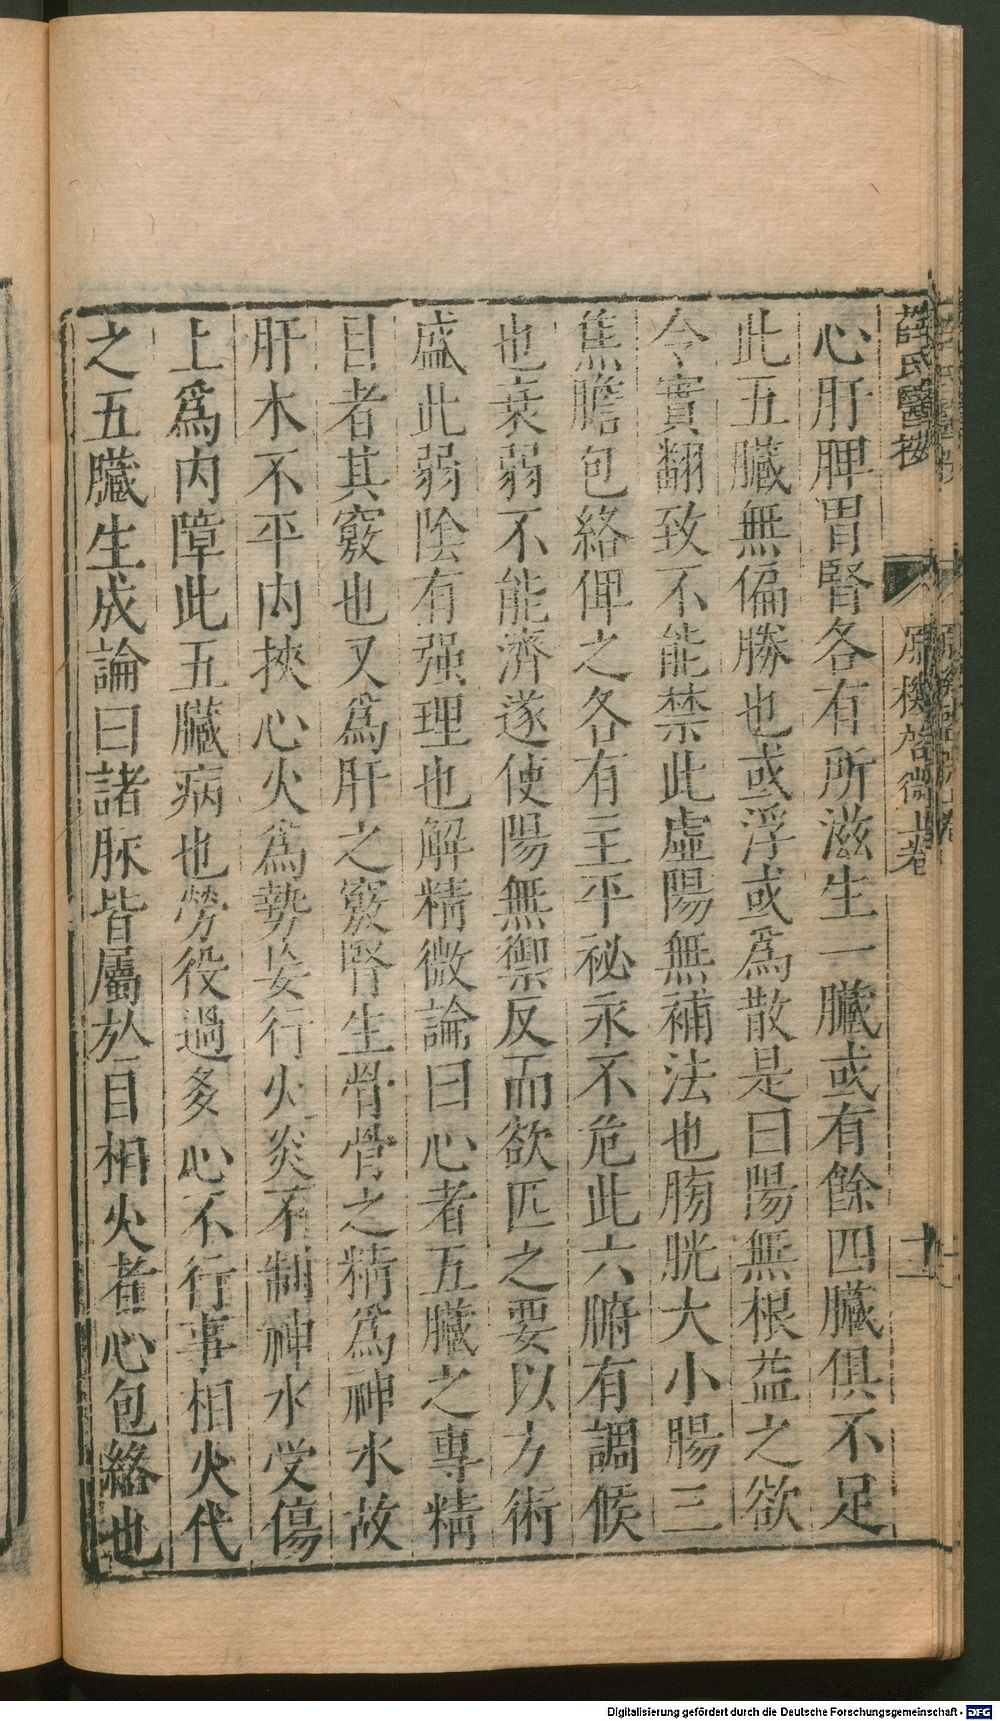 薛氏醫按 原機啓微上卷 十一
心肝脾胃腎各有所滋生一臟或有餘四臟俱不足
此五臟無偏勝也或浮或爲散是曰陽無根益之欲
令實翻致不能禁此虛陽無補法也膀胱大小腸三
焦膽包絡俾之各有主平祕永不危此六腑有調候
也衰弱不能濟遂使陽無禦反而欲匹之要以方術
盛此弱陰有强理也解精微論曰心者五臟之專精
目者其竅也又爲肝之竅腎生骨骨之精爲神水故
肝木不平内挾心火爲勢妄行火炎不制神水受傷
上爲内障此五臟病也勞役過多心不行事相火代
之五臟生成論曰諸脉皆屬於目相火者心包絡也
Digitalisierung gefördert durch die Deutsche Forschungsgemeinschaft - DFG